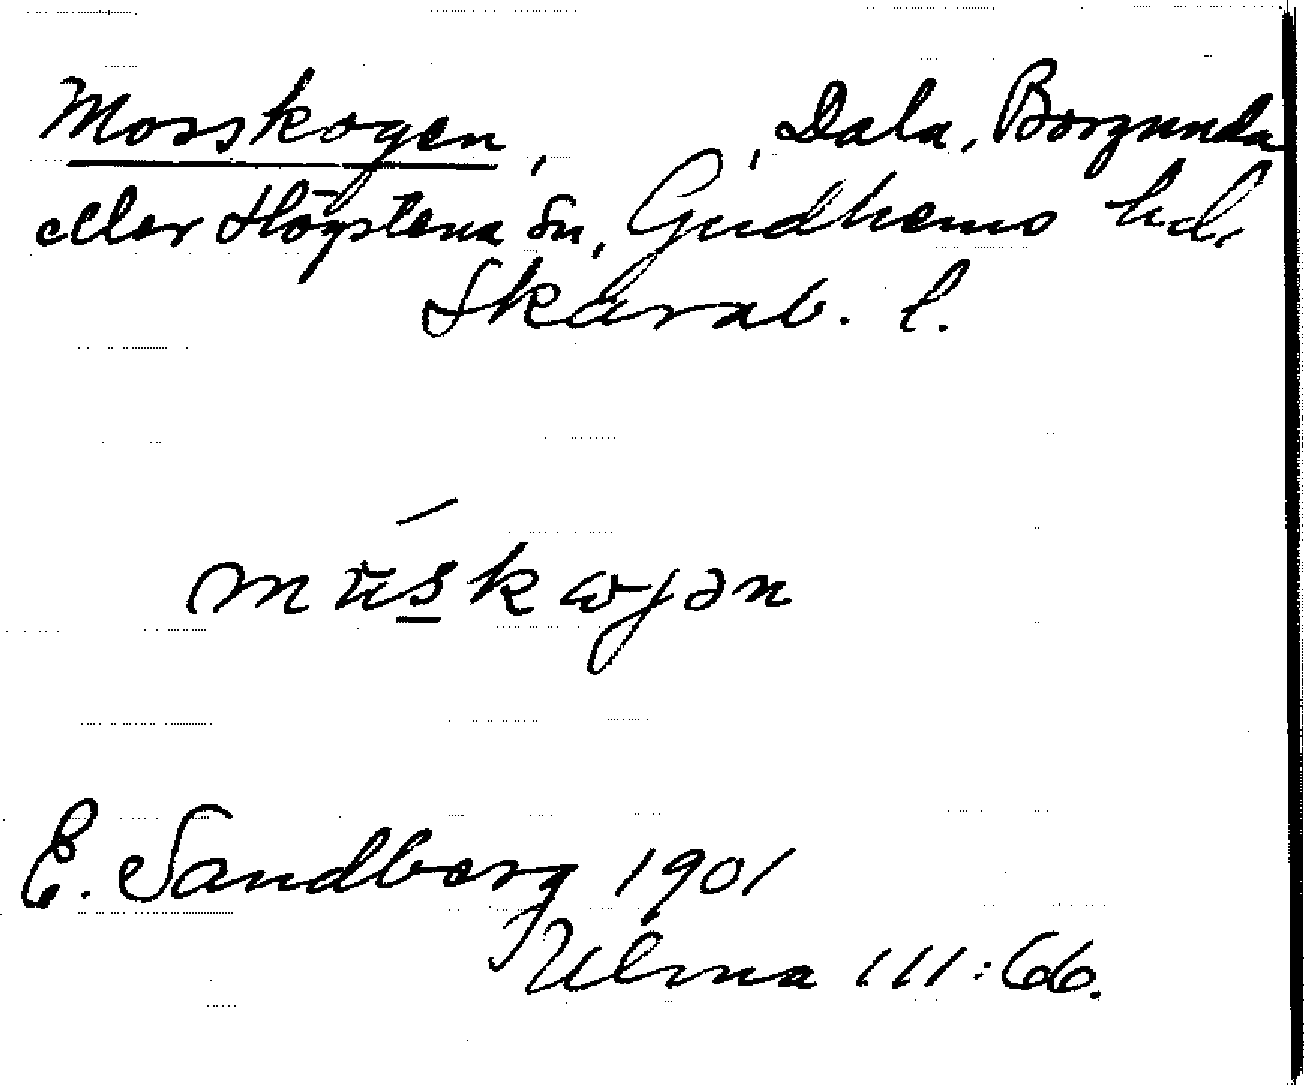 Mosskogen, , Dala, Borgunda
eller Högstena sn, Gudhems hd,
Skarab. l.
mu̇skωgən
E. Sandberg 1901
Ulma 111:66.